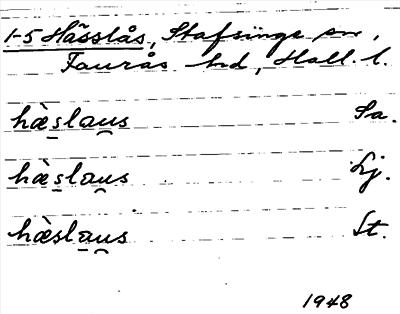 1-5 Hässlås, Stafsinge sn,
Faurås hd, Hall. l.
hæ̀slaus Sa.
hæ̀slaus Lj.
hæ̀slaus St.
1948